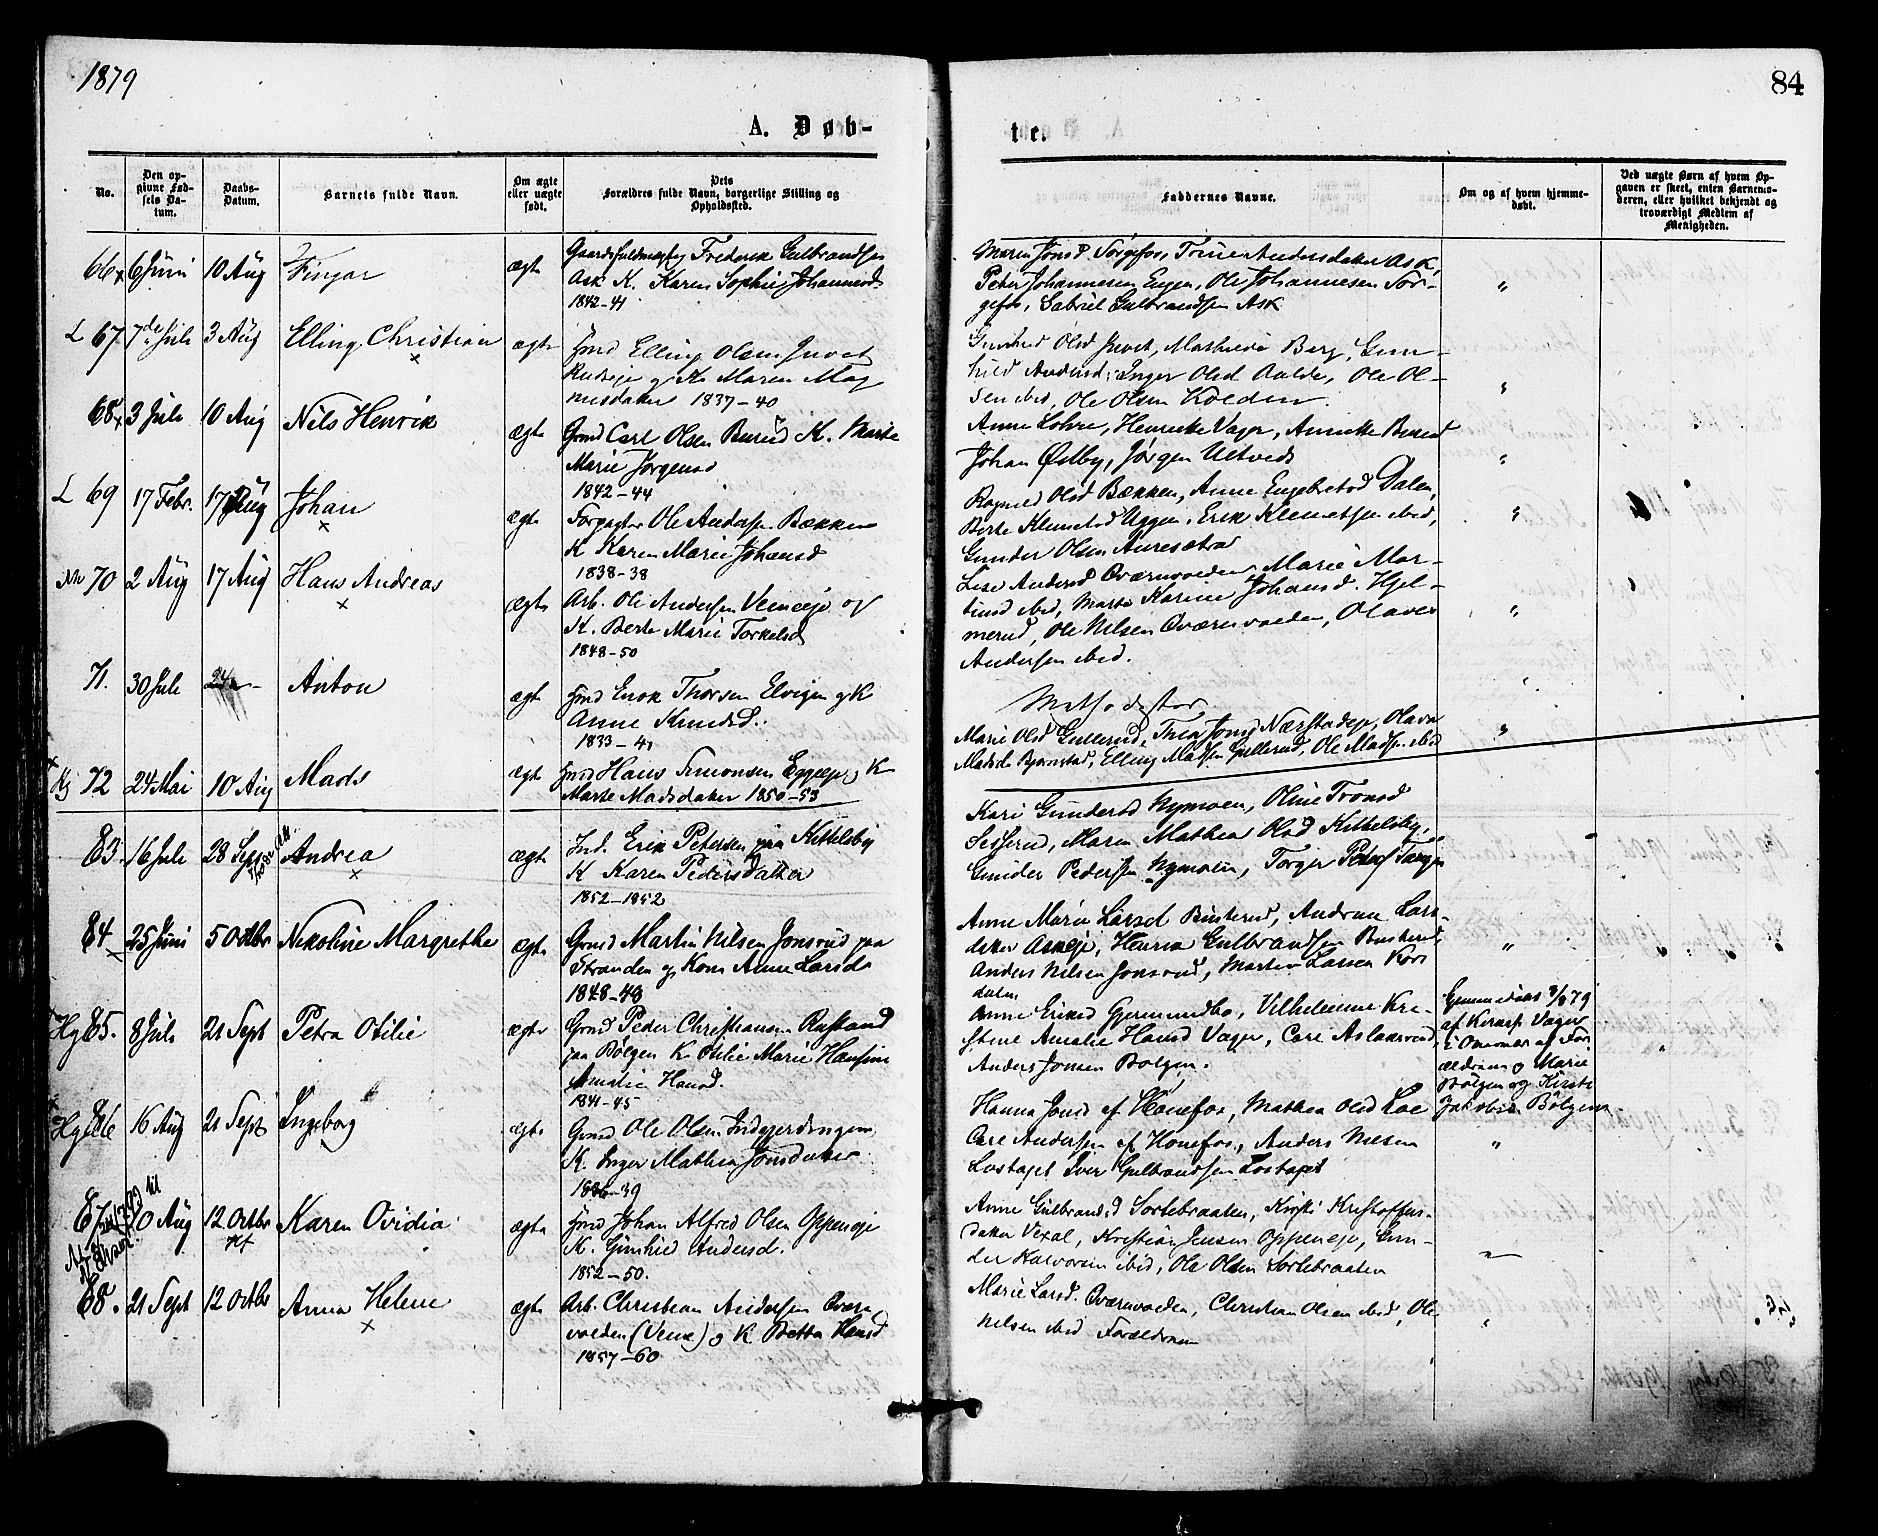 1879
84
A. Døb-
te.
No.
Den op-
givne Fød-
sels Da-
tum.
Daabs-
Datum.
Barnets fulde Navn.
Om ægte
eller uægte
født.
Dets
Forældres fulde Navn, borgerlige Stilling og
Opholdssted.
Faddernes Navne.
Om og af hvem hjemme-
døbt.
Ved uægte Børn af hvem Op-
gaven er skeet, enten Barnemo-
deren, eller hvilket bekjendt og
troværdigt Medlem af
Menigheden.
66 6 Juni 10 Aug ægte
Frederik Gulbrandsen
Ask K. Karen Sophie Johannesd
1842-41
Maren Jonsd Sørgefos, Trine Andersdatter Ask,
Peter Johannesen Engen, Ole Johannesen Sør-
gefos, Gabriel Gulbrandsen Ask
67 7de Juli 3 Aug Elling Christian ægte
Elling Olsen Juvet
og K Maren Mag
nusdatter 1837-40
Gunhild Olsd Juvet, Mathilde Berg, Gun-
hild Andersd, Inger Olsd Aulde, Ole Ol-
sen ibid, Ole Olsen Kolden.
68 3 Juli 10 Aug Nils Henrik ægte
Grmd Carl Olsen Burud K. Marte
Marie Jørgensd
1842-44
Anne Lohre, Henrikke Vager, Annette Burud
Johan Østby, Jørgen Ultvedt
L 69 17 Febr. 17 Aug Johan ægte
Forpagter Ole Andersen Bækken
K Karen Marie Johansd
1838-38
Ragnild Olsd Bækken, Anne Engebretsd Dalen,
Berte Klemetsd Uggen, Erik Klemetsen ibid,
Gunder Olsen Auresætra
70 2 Aug 17 Aug Hans Andreas ægte
Arb. Ole Andersen Vemeeje og
K. Berte Marie Torkelsd
1848-50
Lise Andersd Qværnvolden, Marie Mar-
tinsd ibid, Marte Karine Johansd. Hjel-
merud, Ole Nilsen Qværnvolden, Olaves
Andersen ibid.
71. 30 Juli 24 Anton ægte
Enok Thorsen Elvigen og K
Anne Knudsd.
1833-41
Methodister
72 24 Mai 10 Aug Mads ægte
Hans Simonsen Eggeeje, K
Marte Madsdatter 1850-53
Marie Olsd Gullerud, Thea Jonsd Nærstadeje, Olava
Madsda Bjørnstad, Elling Madsen Gullerud, Ole Madsen ibid
83. 16 Juli 28 Sept Andrea ægte
Ind. Erik Petersen paa Kittelsby
K Karen Pedersdatter
1852-1852
Kari Gundersd Nymoen, Oline Tronsd
Sesserud, Maren Mathea Olsd Kittelsby,
Gunder Pedersen Nymoen, Torger Peders
84. 25 Juni 5 Octbr Nikoline Margrethe ægte
Grmd Martin Nilsen Jonsrud paa
Stranden og Kone Anne Larsda
1848-48
Anne Marie Larsd Busterud, Andrine Lars-
datter Askeje, Henrik Gulbrandsen Busterud,
Anders Nilsen Jonsrud, Martin Larsen Kors
dalen,
Hg 85. 8 Juli 21 Sept Petra Otilie ægte
Grmd Peder Christiansen Rustand
paa Bølgen K Otilie Marie Hansine
Amalie Hansd.
1841-45
Anne Eriksd Gjermundbo, Vilhelmine Kri-
stine Amalie Hansd Vager, Carl Aslaksrud,
Anders Jonsen Bølgen.
Hjemmedøbt 8/8 79
af Vager
i Overvær af For
ældrene og Marie
Bølgen og Kirsti
Jakobsd Bølgen
Hg 86 16 Aug 21 Sept Ingeborg ægte
Grmd Ole Olsen Indgjerdingen,
K. Inger Mathea Jonsdatter
1836-39
Hanna Jonsd af Hønefos, Mathea Olsd Loe
Carl Andersen af Hønefos, Anders Nilsen
Lostaget Iver Gulbrandsen Lostaget
87 10 Aug 12 Octbr Karen Ovidia ægte
Johan Alfred Olsen Oppeneje
K. Gunhild Andersd.
1852-50.
Anne Gulbrandsd Sortebraaten, Kirsti Kristoffers-
datter Vexal, Kristian Jensen Oppeneje, Gun-
der Halvorsen ibid, Ole Olsen Sortebraaten
88. 21 Sept 12 Octbr Anna Helene ægte
Arb. Christian Andersen Qværn
volden (Veme) og K Betta Hansd
1857-60
Marie Larsd. Qværnvolden, Christian Olsen ibid, Ole
Nilsen ibid Forældrene